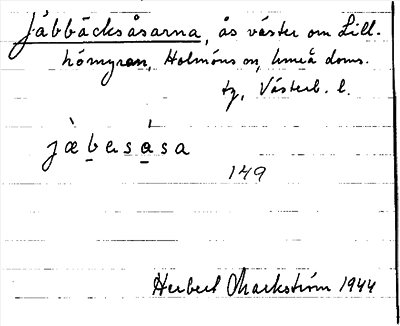 Jäbbäcksåsarna, ås väster om Lill-
hömyran, Holmöns sn, Umeå doms.
tg, Västerb. l.
jæ̀bɐsása
149
Herbert Markström 1944